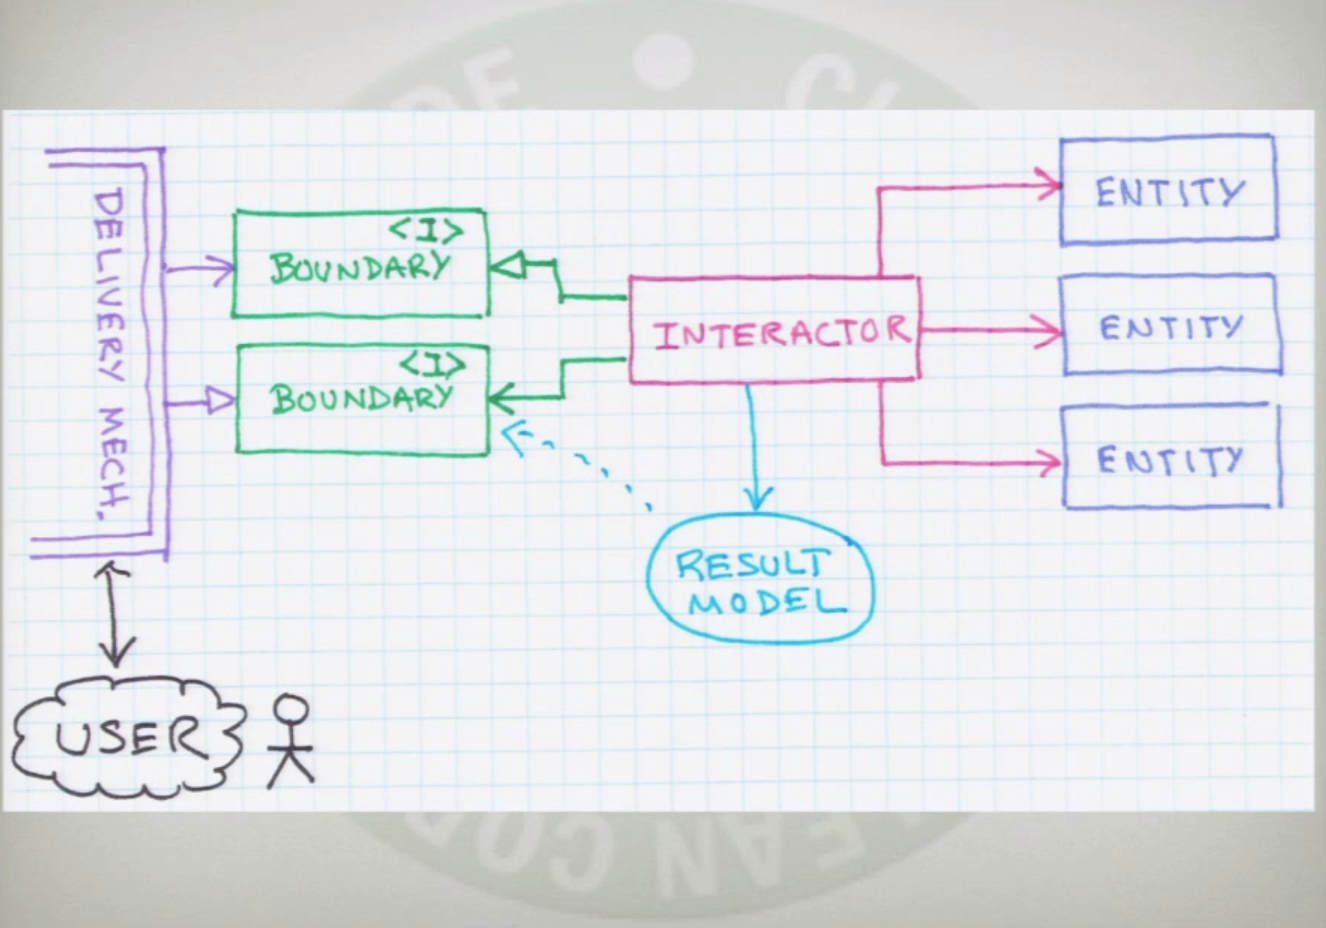 DELIVERY MECH.
<I>
BOUNDARY
<I>
BOUNDARY
INTERACTOR
ENTITY
ENTITY
ENTITY
RESULT
MODEL
USER
CLEAN CODE